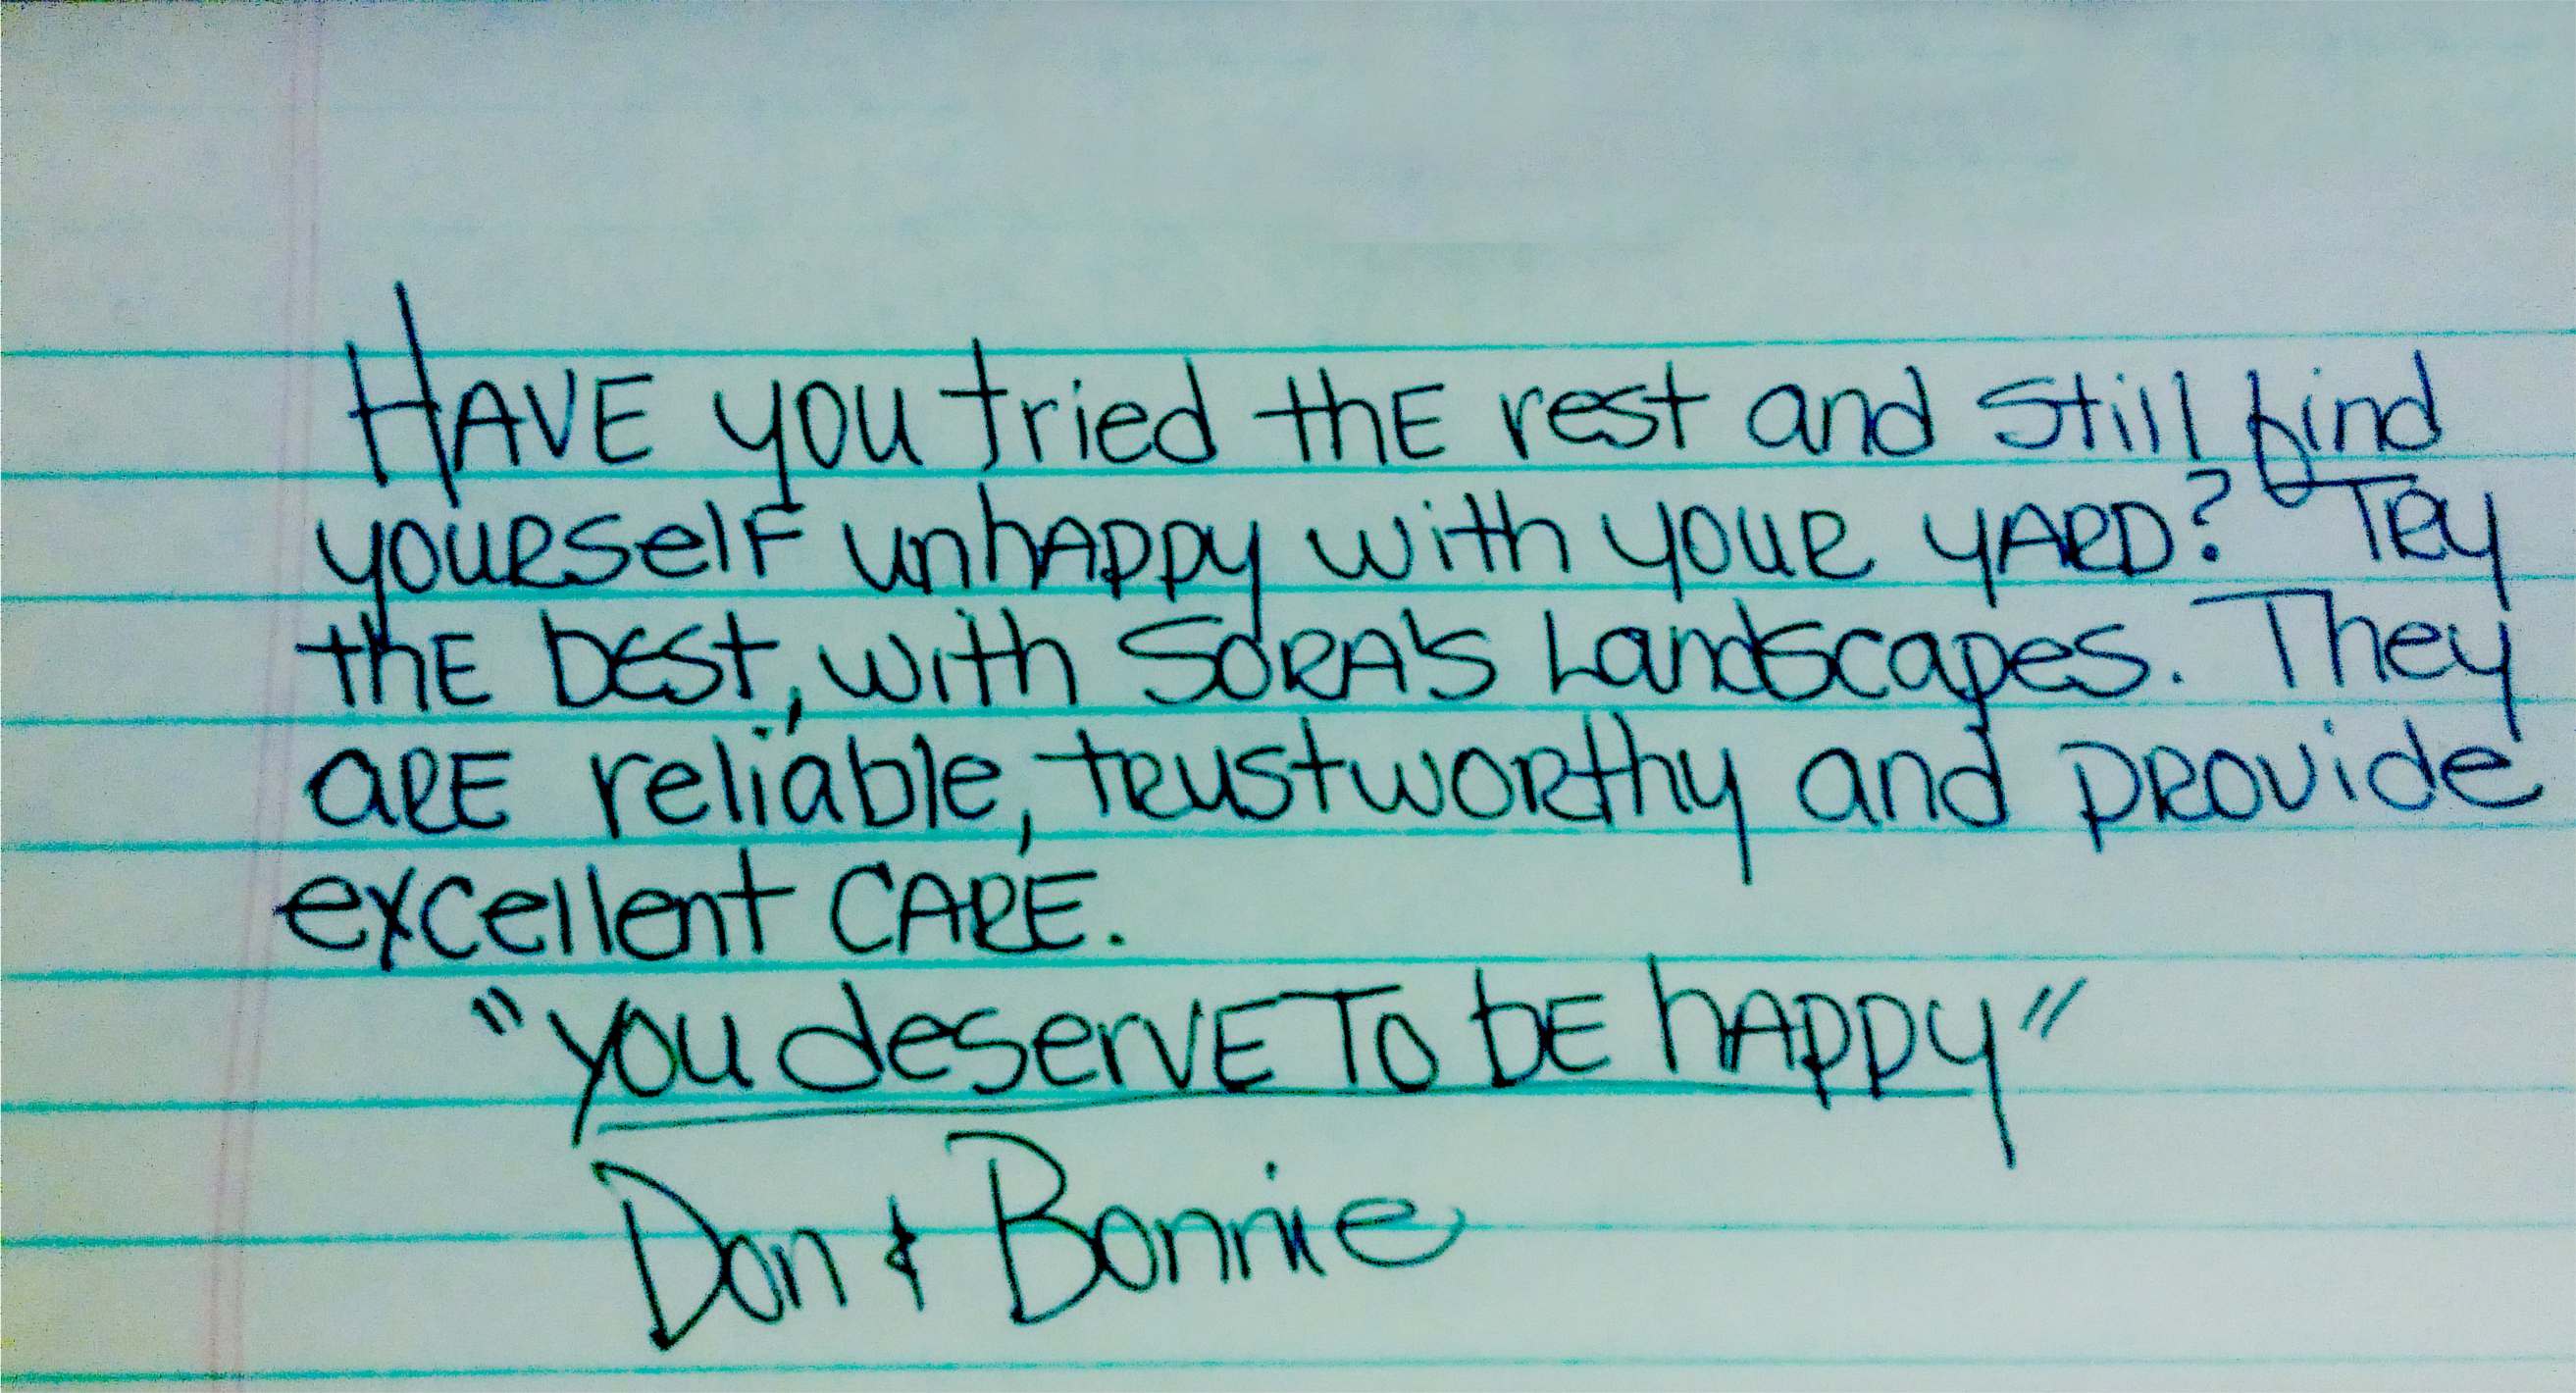 HAVE you tried thE rest and still find
yourself unhAppy with your yARD? Try
thE bEst, with SORA's Landscapes. They
arE reliable, trustworthy and provide
excellent CARE.
"you deservE To bE hAppy"
Don & Bonnie